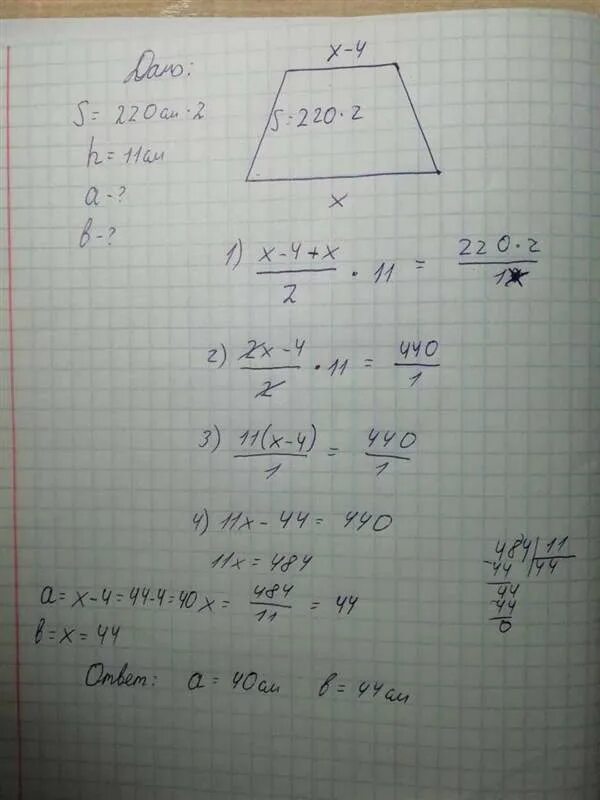 Дано:
S = 220 см · 2
h = 11 см
a - ?
b - ?
x-4
S = 220 · 2
x
1) (x-4+x)/2 · 11 = (220 · 2)/1
2) (2x-4)/2 · 11 = 440/1
3) 11(x-4)/1 = 440/1
4) 11x - 44 = 440
11x = 484
a = x-4 = 44-4 = 40
x = 484/11 = 44
b = x = 44
484 | 11
44 | 44
44
44
0
Ответ: a = 40 см b = 44 см